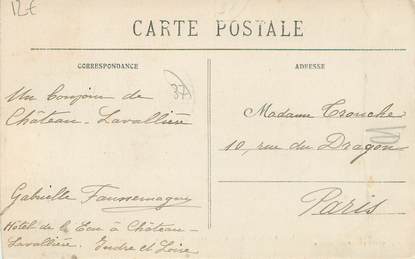 12€
CARTE POSTALE
CORRESPONDANCE
ADRESSE
37
Un bonjour de
Château-Lavallière
Gabrielle
Hôtel de l' Eau à Château-
Lavallière. Indre et Loire
Madame Trouche
10, rue du Dragon
Paris